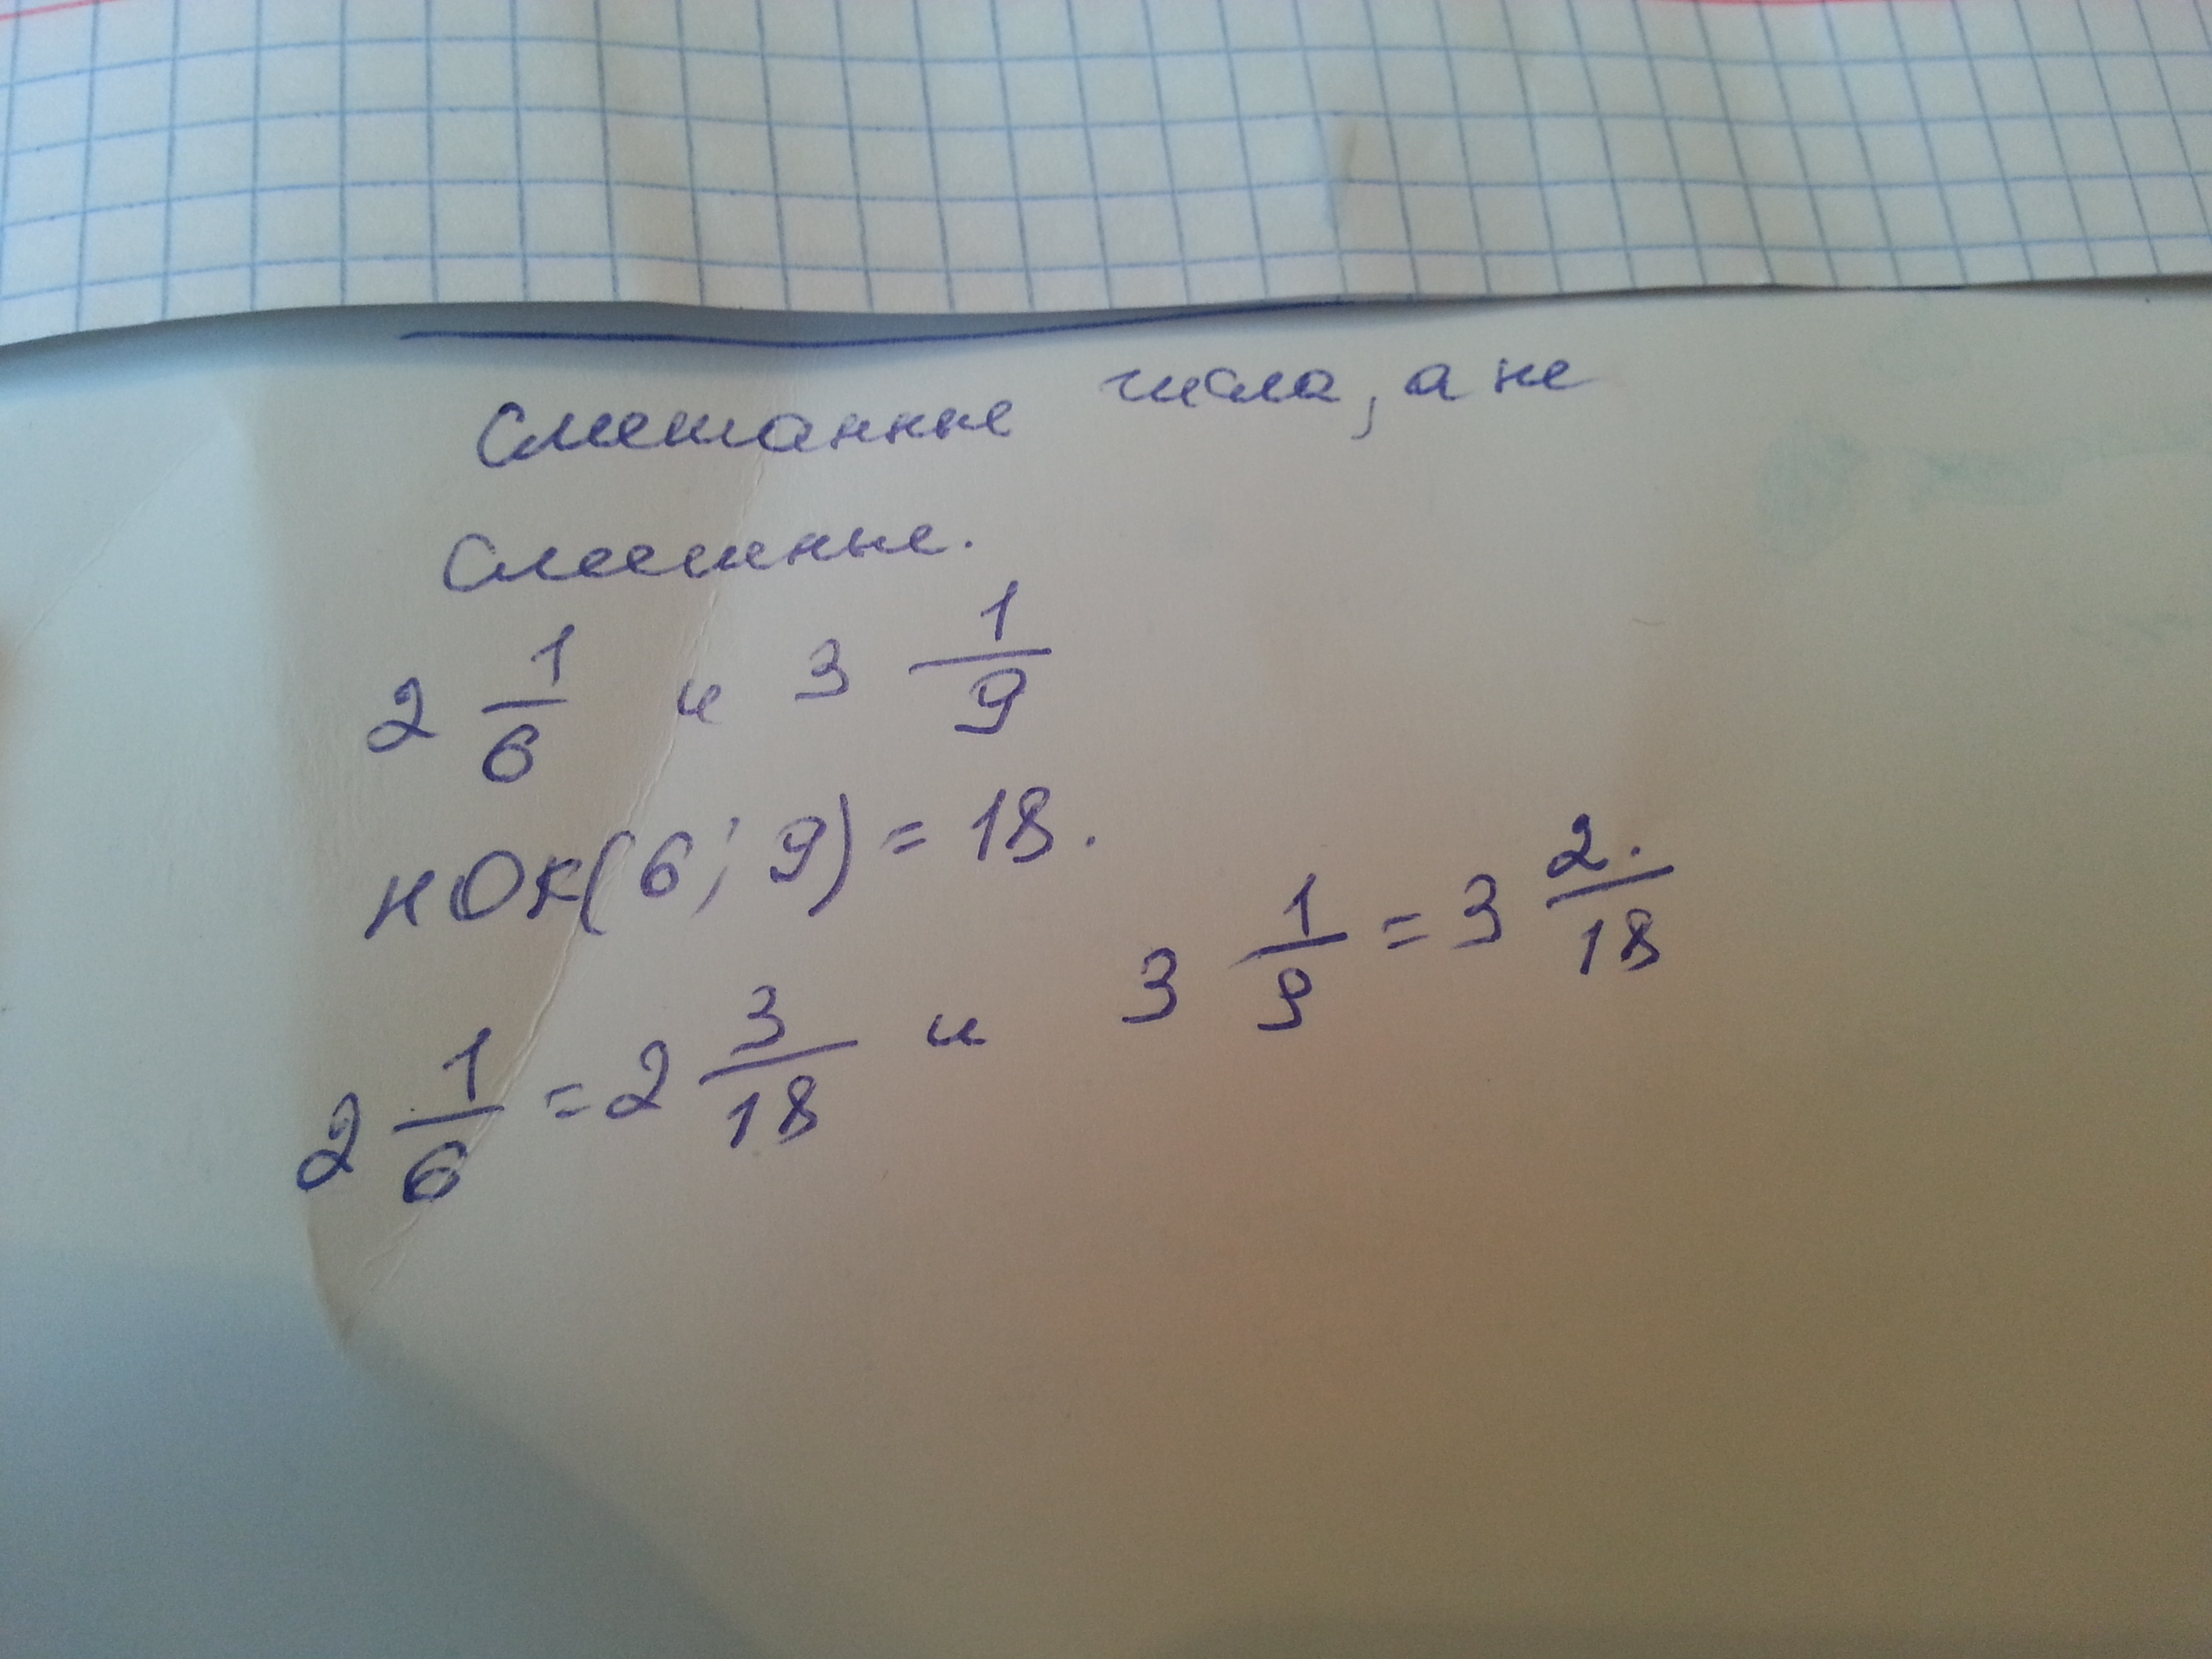 Смешанные числа, а не
Смешные.
2 1/6 и 3 1/9
НОК(6; 9) = 18.
2 1/6 = 2 3/18 и 3 1/9 = 3 2/18